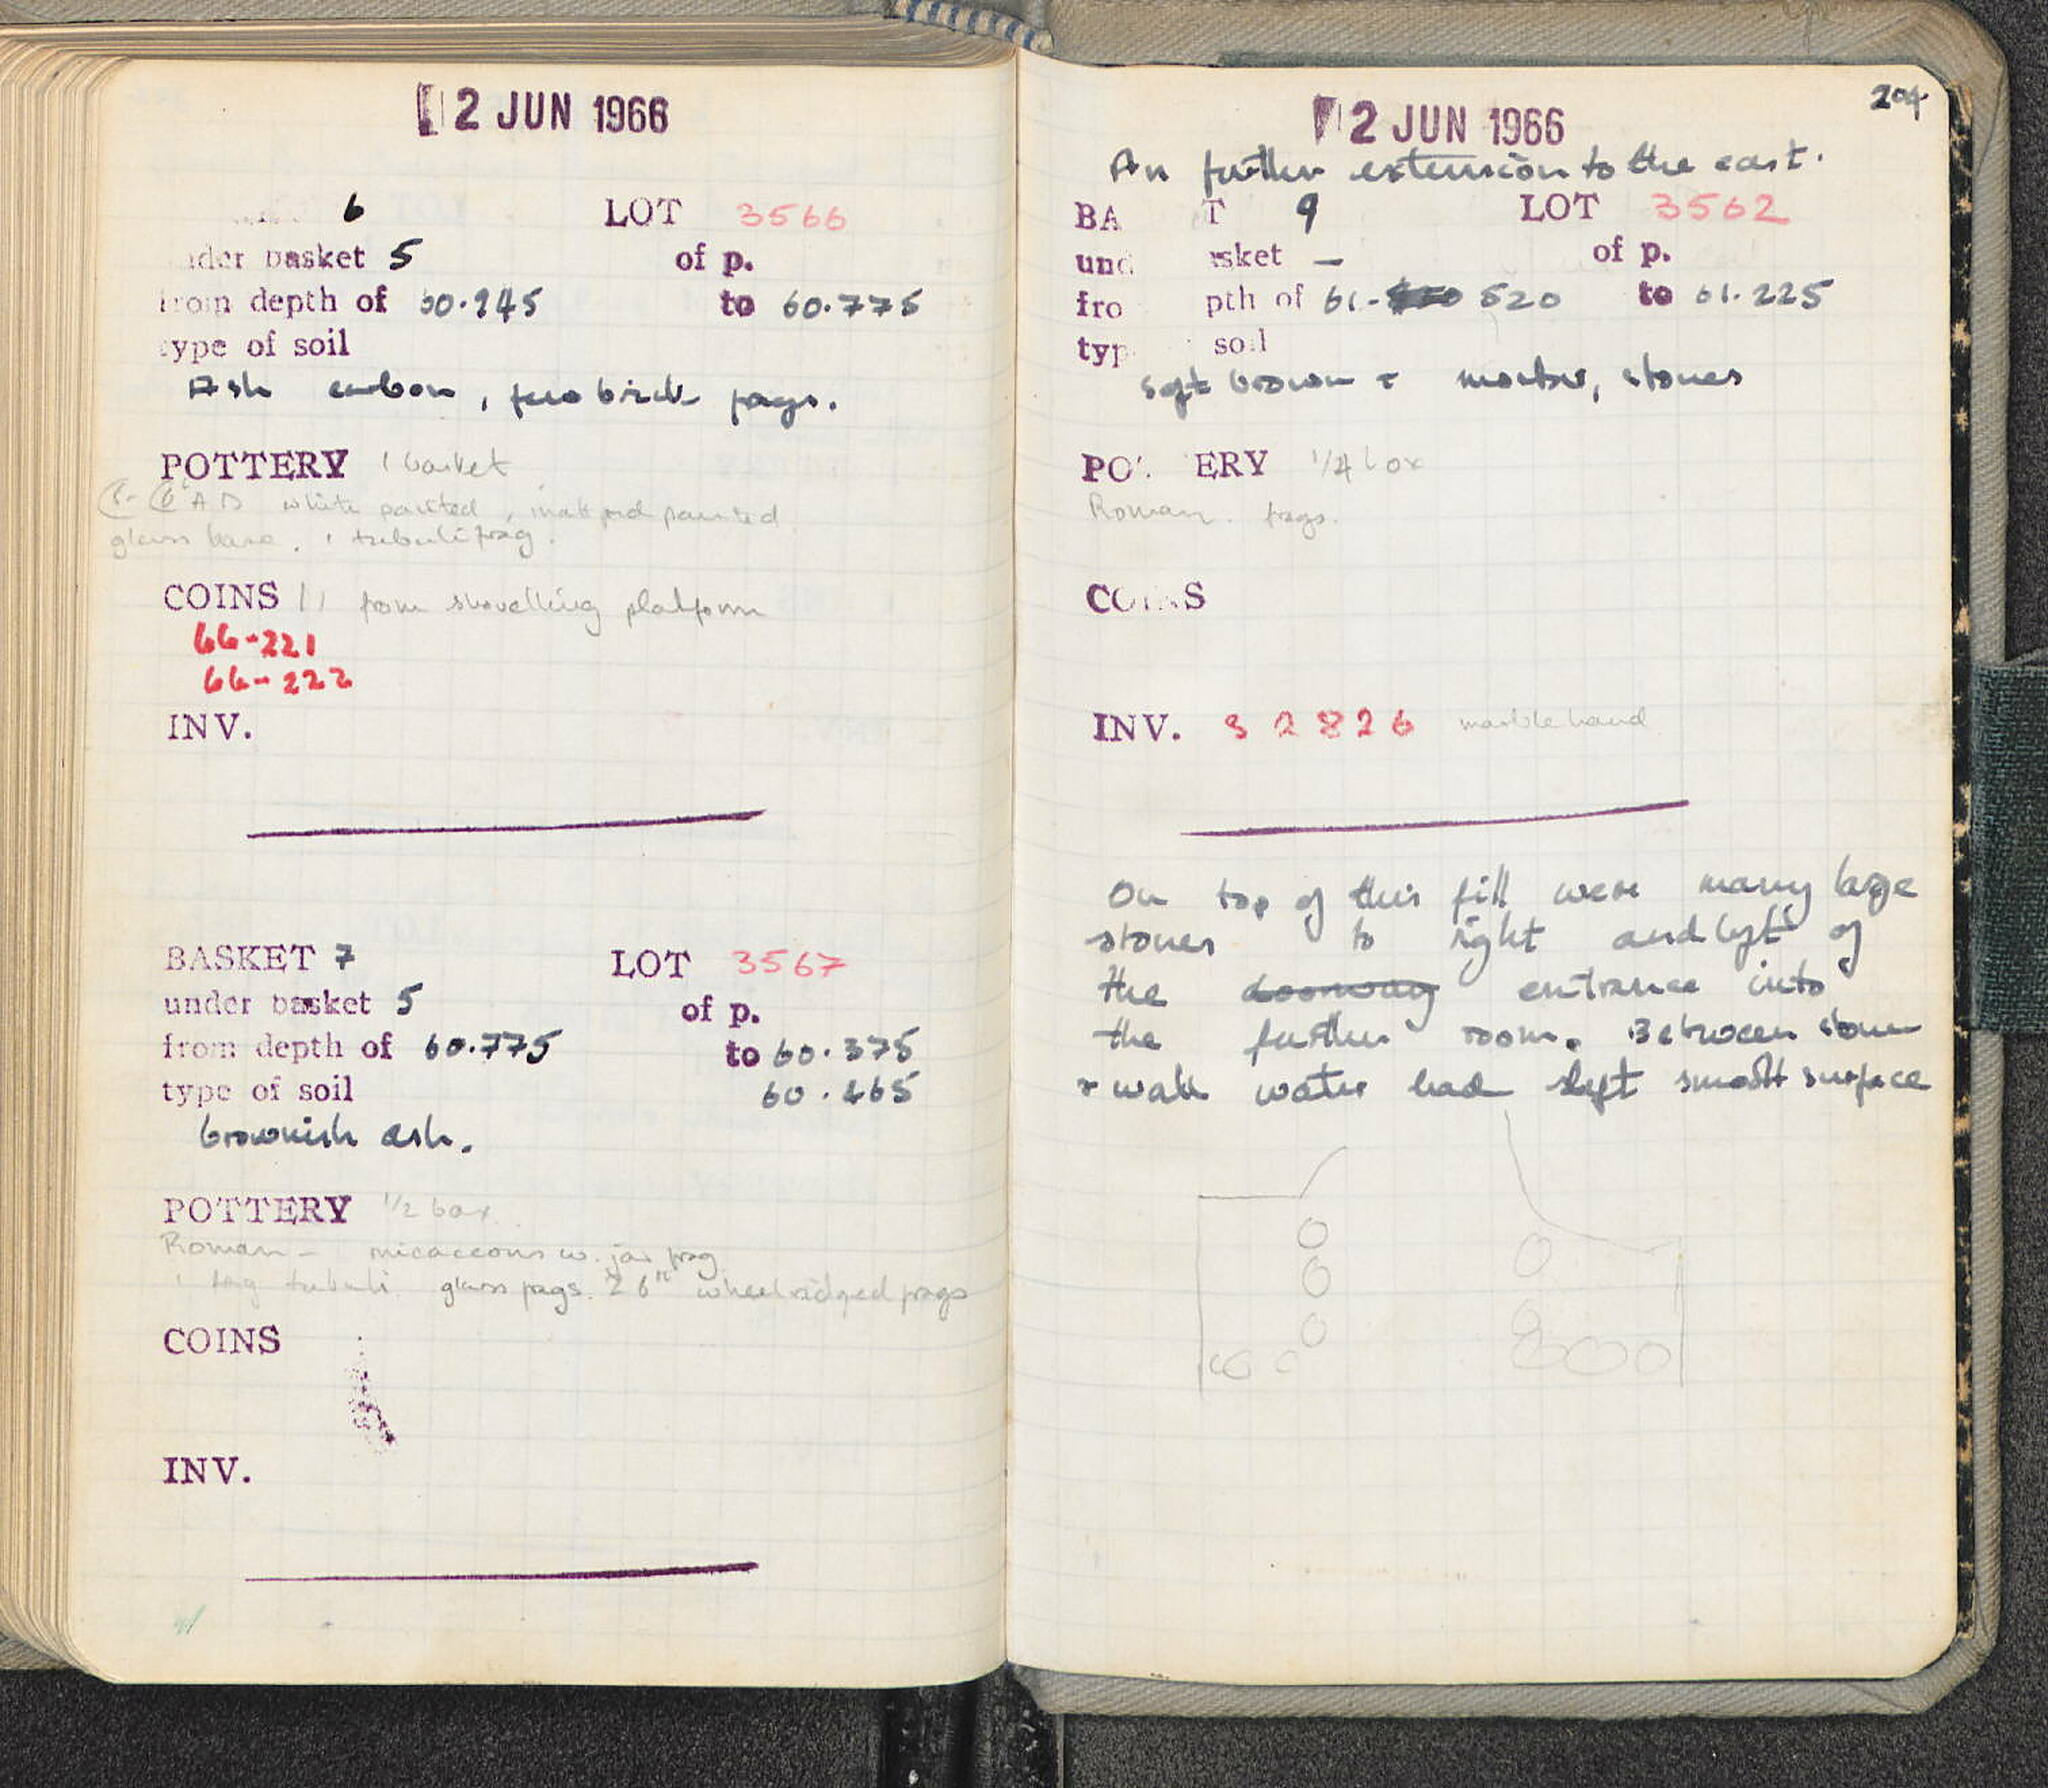 2 JUN 1966
6 LOT 3566
under basket 5 of p.
from depth of 60.945 to 60.775
type of soil
Ash carbon, few brick frags.
POTTERY 1 basket
AD white painted, painted
glass base. 1 tubuli frag.
COINS 11 from shovelling platform
66-221
66-222
INV.
BASKET 7 LOT 3567
under basket 5 of p.
from depth of 60.775 to 60.375
type of soil 60.465
brownish ash.
POTTERY 1/2 box.
Roman - micaceous w. jar frag
1 frag tubuli glass frags. wheelridged frags
COINS
INV.
204
2 JUN 1966
An further extension to the east.
BA T 9 LOT 3562
und sket — of p.
fro pth of 61. 520 to 61.225
typ soil
soft brown mortar, stones
PO ERY 1/4 box
Roman frags.
COINS
INV. S 2826 marble hand
On top of this fill were many large
stones to right and left of
the doorway entrance into
the further room. Between stones
+ wall water had left smooth surface